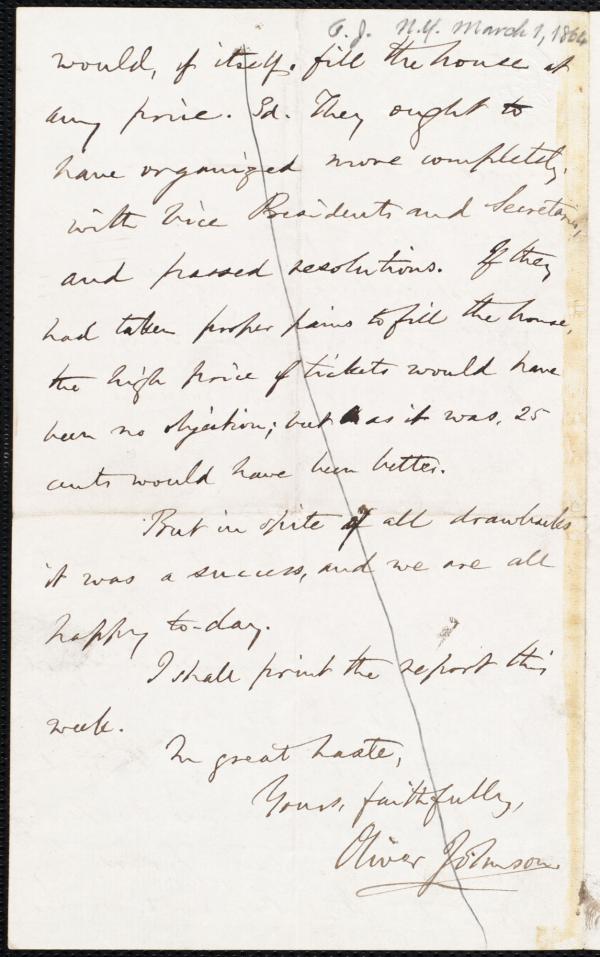 O. J. N.Y. March 1, 1864
would, of itself, fill the house at
any price. Ed. They ought to
have organized more completely,
with Vice Presidents and Secretaries,
and passed resolutions. If they
had taken proper pains to fill the house,
the high price of tickets would have
been no objection; but as it was, 25
cents would have been better.
But in spite of all drawbacks
it was a success, and we are all
happy to-day.
I shall print the report this
week.
In great haste,
Yours, faithfully,
Oliver Johnson